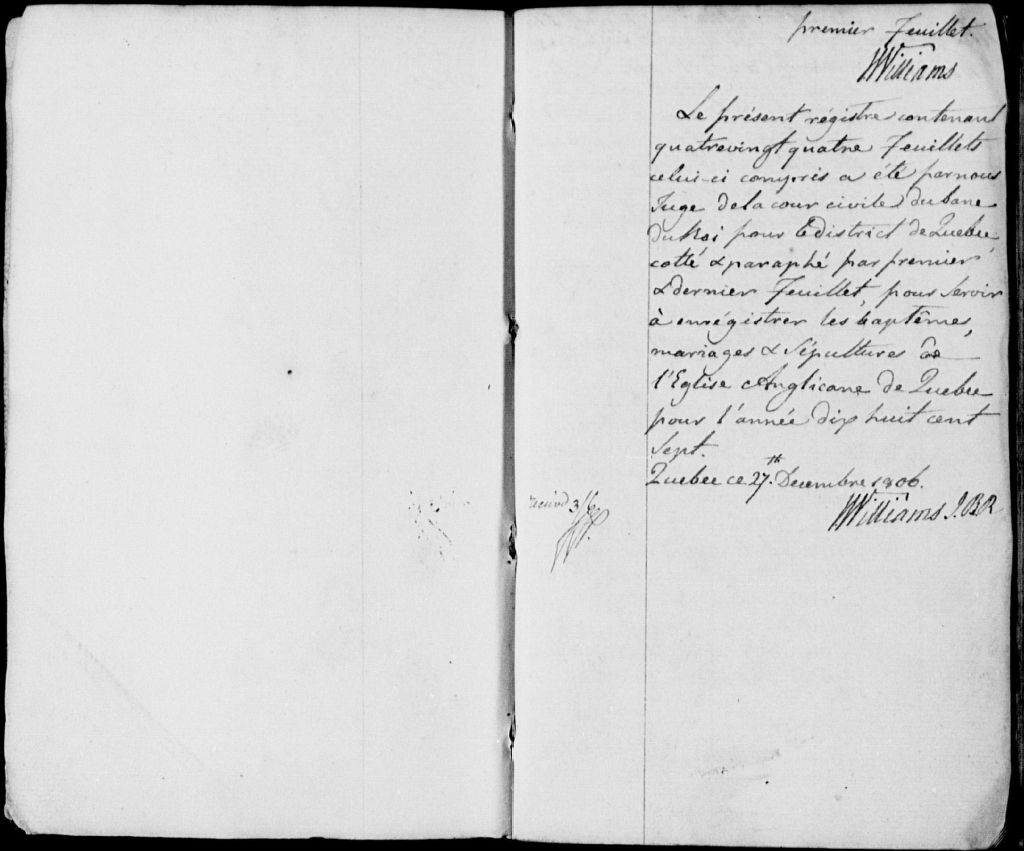 premier Feuillet.
Williams
Le présent régistre contenant
quatrevingt quatre Feuillets
celui-ci compris a été par nous
Juge de la cour civile du banc
du Roi pour le District de Quebec
cotté & paraphé par premier
& dernier Feuillet, pour servir
à enrégistrer les baptêmes,
mariages & sépultures de
l'Eglise Anglicane de Quebec
pour l'année dix huit cent
sept.
Quebec ce 27th Decembre 1806.
Williams J.B.R